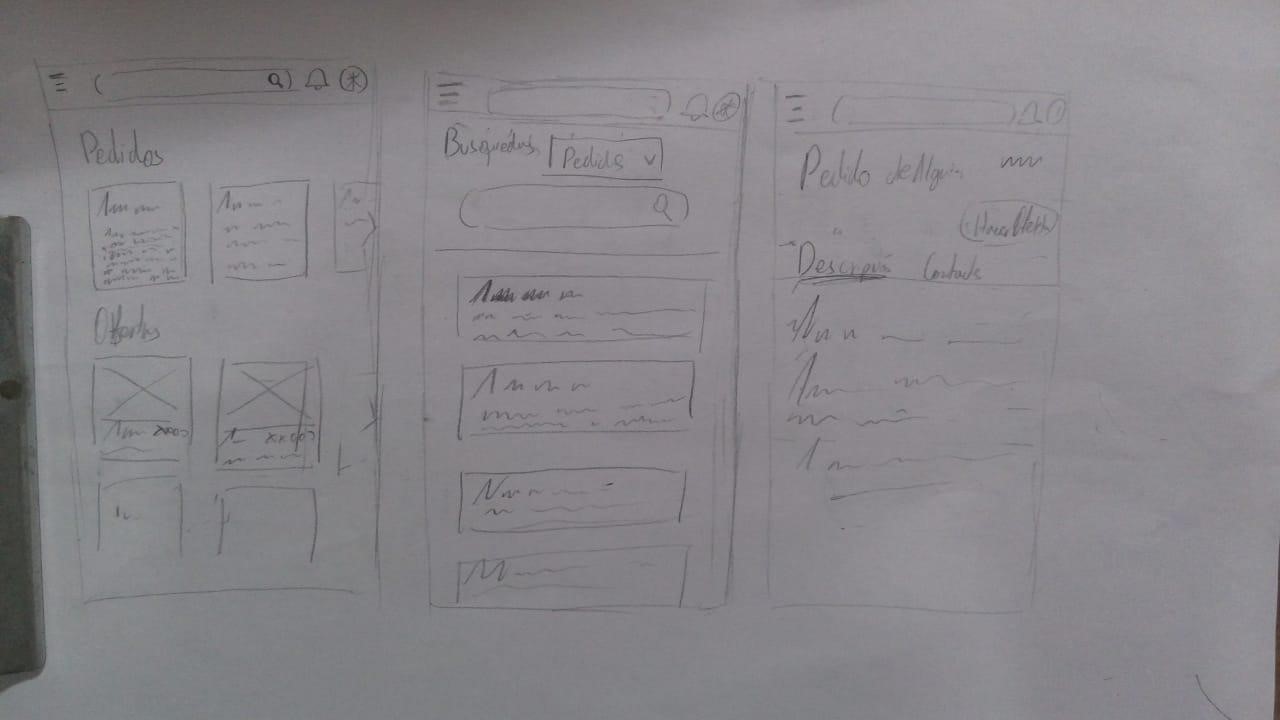 Pedidos
Ofertas
xxxx
xxxx
Busquedas
Pedidos
Pedido de Alguien
Hacer Oferta
Descripción
Contacto